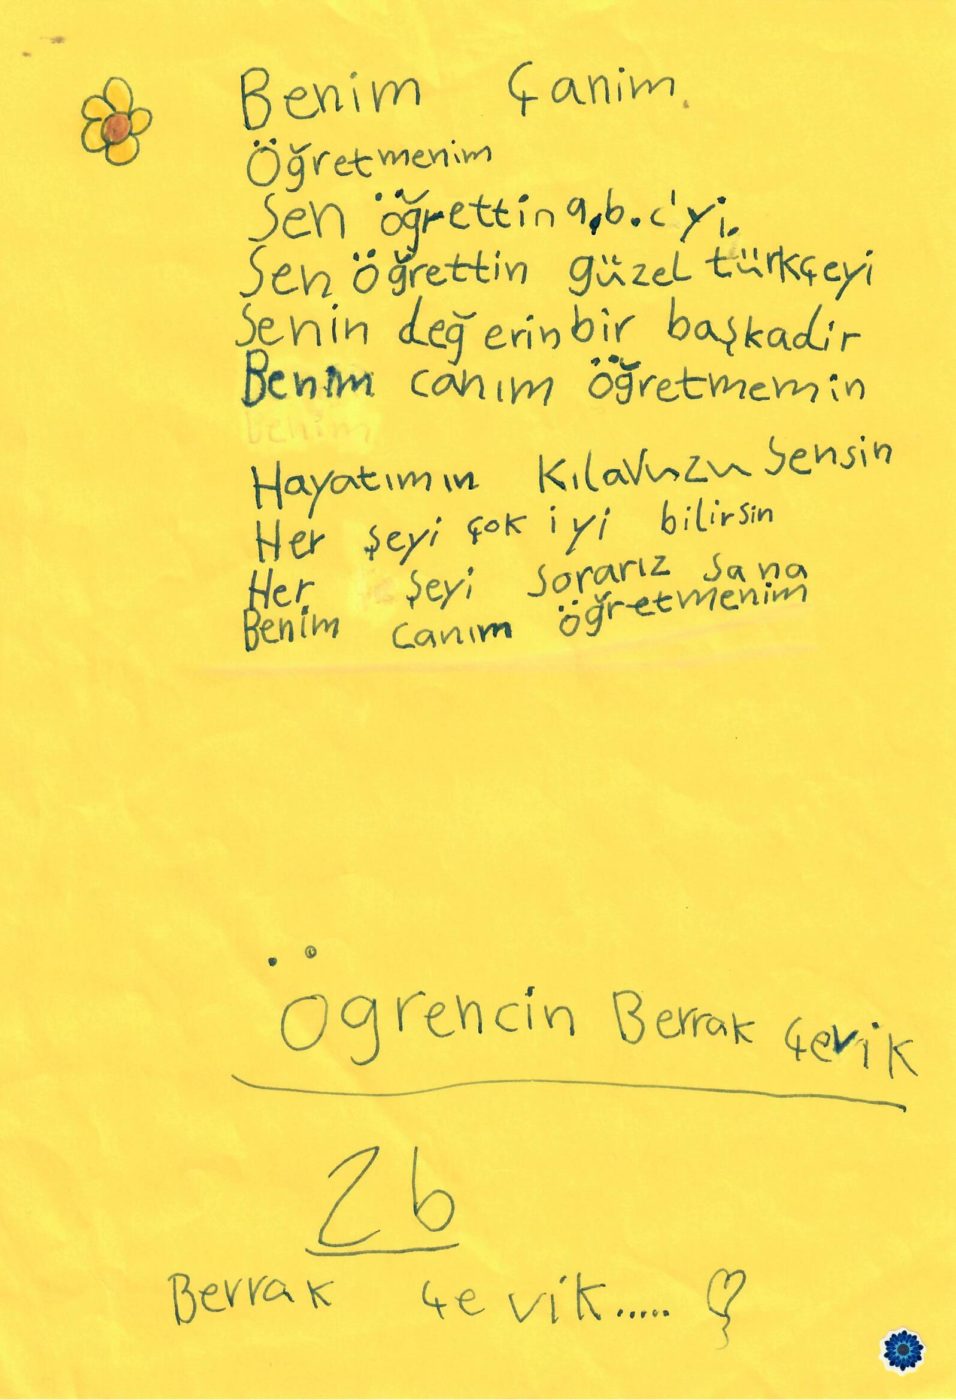 Benim Çanim.
Öğretmenim
Sen öğrettin a,b.c'yi.
Sen öğrettin güzel türkçeyi
Senin değerin bir başkadir
Benim canım öğretmemin
Hayatımın Kılavuzu Sensin
Her şeyi çok iyi bilirsin
Her şeyi sorarız sana
Benim canım öğretmenim
Ögrencin Berrak Çevik
2b
Berrak Çevik.....